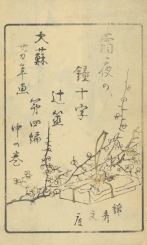 霜夜の
鐘十字
辻筮
第四編
仲の巻
大蘇
芳年画